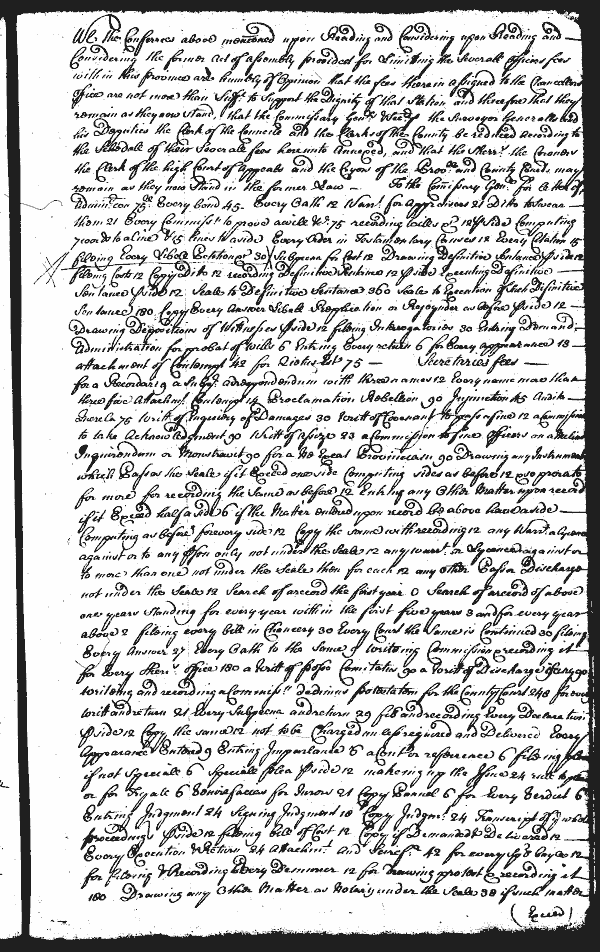 We the Conferrees above mentioned upon Reading and Considering upon Reading and
Considering the former Act of Assembly provided for Limitting the Severall Officers fees
within this province are humbly of Opinion that the fees therein assigned to the Chancellors
Office are not more than Suff.t to Support the Dignity of that Station and therefore that they
remain as they now Stand, that the Commissary Gen.ll the Surveyor Generalls and
his Deputies the Clerk of the Councill and the Clerks of the County be reduced according to
the Schedule of their Severall fees hereunto Annexed, and that the Sherr.s the Coroners
the Clerk of the high Court of Appeals and the Cryers of the Prov.ll and County Courts may
remain as they now Stand in the former Law — To the Comissary Gen.ll for a
Admin.con 75 Every Bond 45 Every Oath 12 Warr.t for Apprizers 21 Ditto to Swear
them 21 Every Commiss.n to prove a will &c 75 recording wills 12 Side Computing
7 words to a line & 15 lines to a side Every Order in Testamentary Causes 12 Every Citation 15
filing Every Libell 30 Subpena for Cost 12 Drawing Definitive Sentance Side 12
filing Cost 12 Copy ditto 12 recording Definitive Sentance 12 Side Executing Definitive
Sentance Side 12 Seale to Definitive Sentance 360 Seale to Execution of Such Definitive
Sentance 180 Copy Every Answer Libell Replication or Rejoynder as before Side 12
Drawing Depositions of Witnesses Side 12 filing Interrogatories 30 Entring Demand
Administration for probat of will 6 Entring Every return 6 for Every appearance 18
attachment of Contempt 42 for 75 — Secretaries fees —
for a Record 19 a Subp.a ad respondendum with three names 12 Every name more than
three five Attachm.t Contempt 14 Proclamation Rebellion 90 Injunction 45 Audita
Querela 75 Writt of Inquiry of Damages 30 Writt of Covenant to pass a fine 12 a Commission
to take Acknowledgment 90 Writt of 23 a Commission to
Inquirendum or Monstravit 90 for a Great Provinciall 90 Drawing any Instrument
which passas the Seale if it Exceed one side Computing sides as before 12 & so prorata
for more for recording the Same as before 12 Entring any Other Matter upon record
if it Exceed half a side 6 if the Matter entered upon record be above have a side
Computing as before for every side 12 Copy the same with recording 12 any Warr.t
against or to any person only not under the Seale 12 any warr.t or against or
to more than one not under the Seale then for each 12 any other Pass or Discharge
not under the Seale 12 Search of a record the first year 0 Search of a record of above
one years Standing for every year within the first five years 3 and for every year
above 2 filing every bill in Chancery 30 Every Court the Same is Continued 30 filing
Every Answer Every Oath to the Same 9 writeing Commission recording it
for Every Sheriffs office 180 a Writt of Posse Comitatus 90 a Writt of Discharge
writeing and recording a Commiss.n dedimus Potestatem for the County Court 240 for every
writt and return 21 Every Subpena and return 29 file and recording Every Declaration
Side 12 Copy the same 12 not to be Charged unless required and Delivered Every
Appearance Entered 9 Entring Imparlance 6 a Cont. or refference 6 filing plea
if not Speciall 6 Speciall plea Side 12 makeing up the Issue 24 rule to plea
or for Tryall 6 Venire facias for Jurors 21 Copy Pannel 6 for Every Verdict 6
Entring Judgment 24 Signing Judgment 18 Copy Judgm.t 24 Transcript of y.e whole
proceedings Side 12 filing bill of Cost 12 Copy if Demanded & Delivered 12
Every Execution & Return 24 Attachm.t and 42 for every 12
for filing & Recording Every Demurrer 12 for Drawing protest & recording it
180 Drawing any Other Matter as Notary under the Seale 38 if such matter
(Exceed)